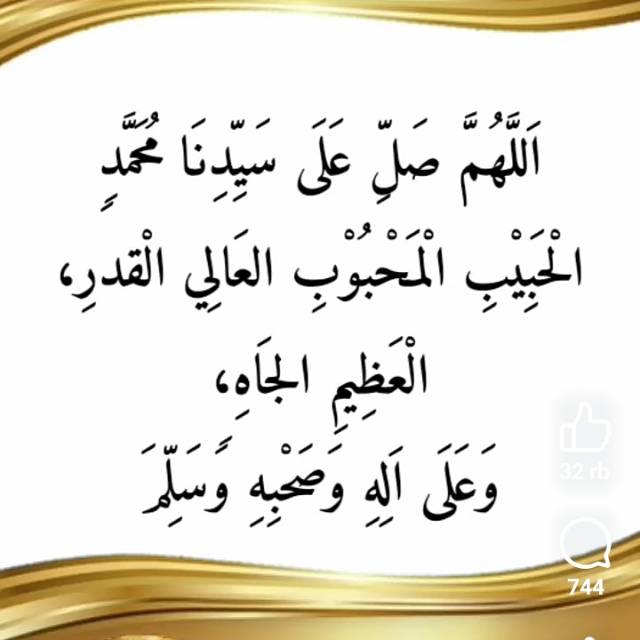 اَللَّهُمَّ صَلِّ عَلَى سَيِّدِنَا مُحَمَّدٍ
الْحَبِيْبِ الْمَحْبُوْبِ العَالِي الْقدرِ،
الْعَظِيمِ الجَاهِ،
وَعَلَى اَلِهِ وَصَحْبِهِ وَسَلِّمَ
32 rb
744